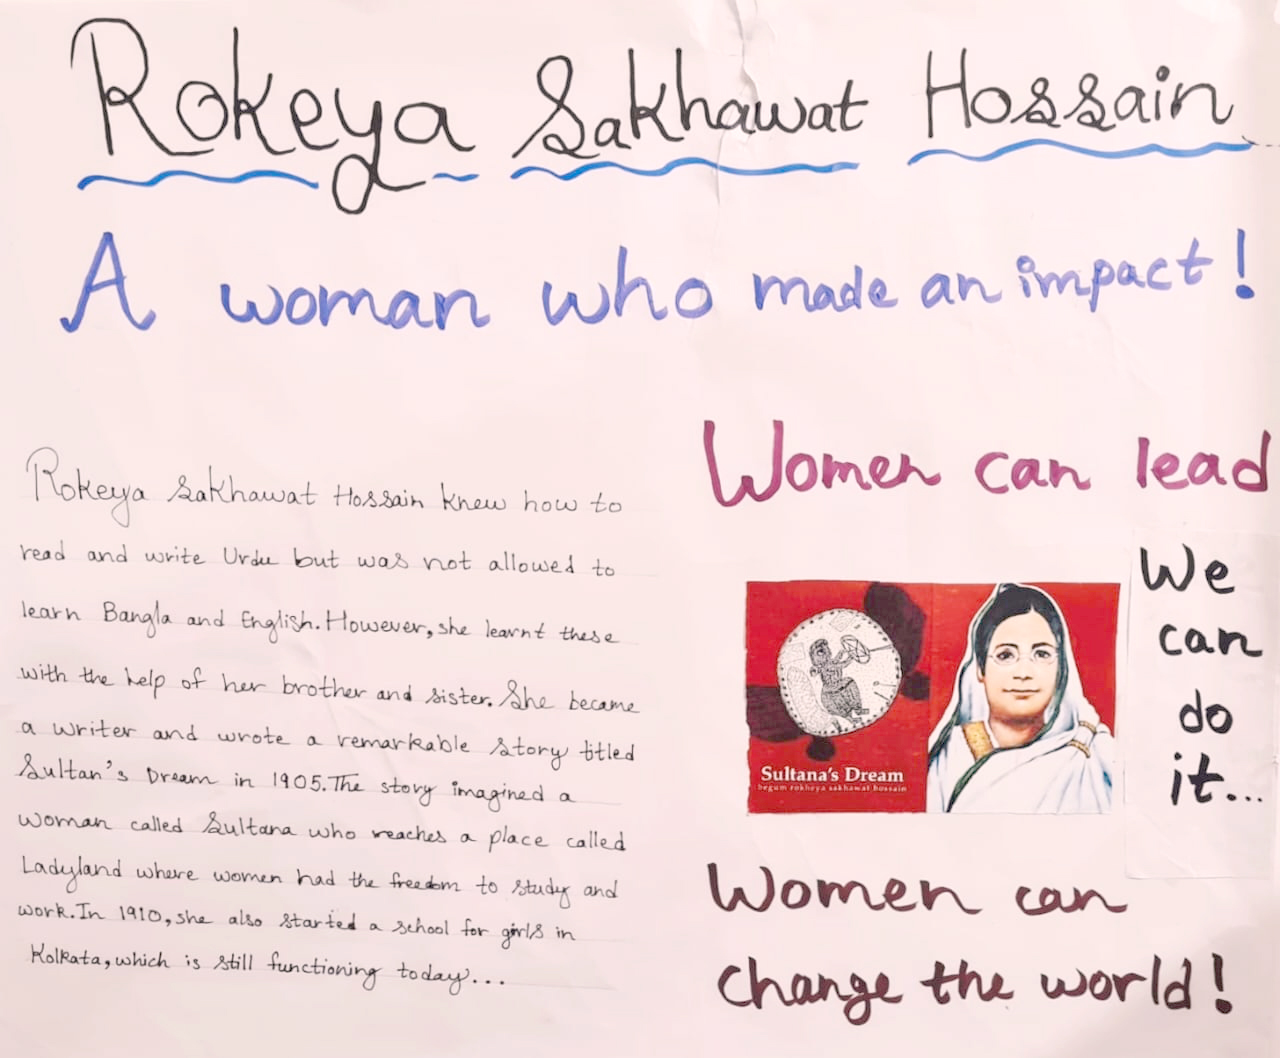 Rokeya Sakhawat Hossain
A woman who made an impact!
Rokeya Sakhawat Hossain knew how to
read and write Urdu but was not allowed to
learn Bangla and English. However, she learnt these
with the help of her brother and sister. She became
a writer and wrote a remarkable story titled
Sultan's Dream in 1905. The story imagined a
woman called Sultana who reaches a place called
Ladyland where women had the freedom to study and
work. In 1910, she also started a school for girls in
Kolkata, which is still functioning today...
Women can lead
Sultana's Dream
begum rokheya sakhawat hossain
We
can
do
it...
Women can
change the world!